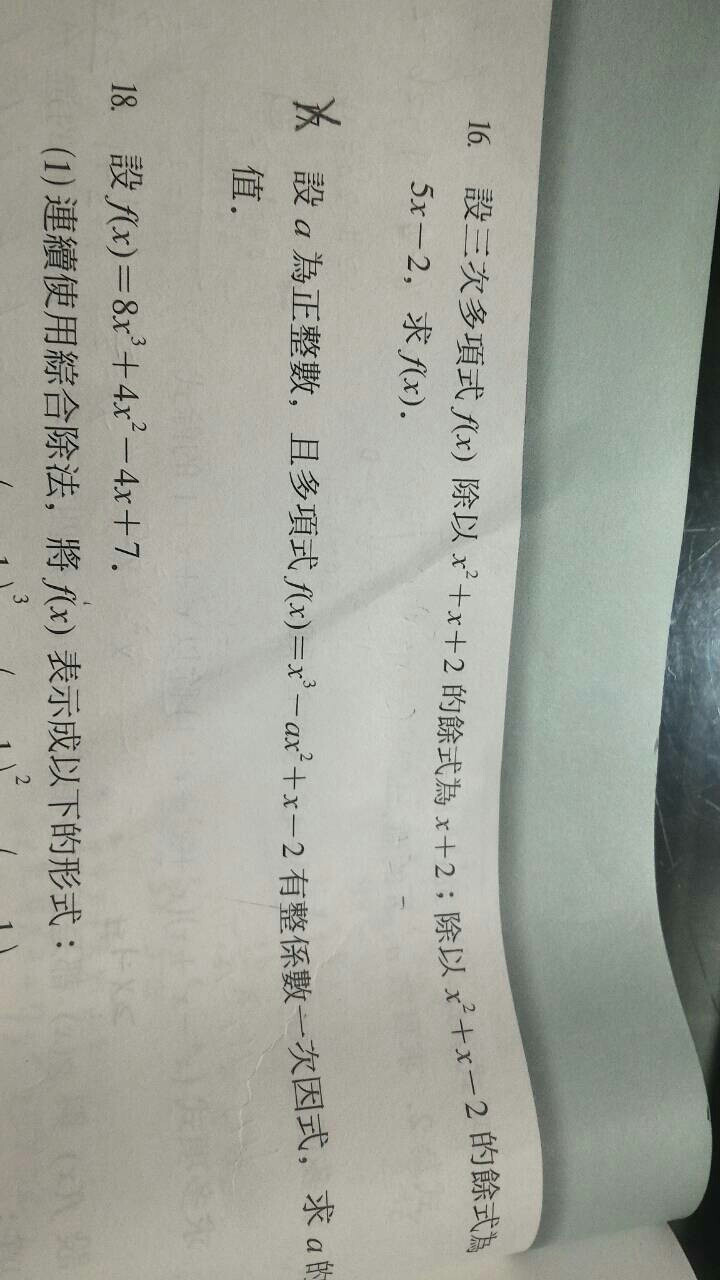 16. 設三次多項式 f(x) 除以 x²+x+2 的餘式為 x+2；除以 x²+x−2 的餘式為
5x−2，求 f(x)．
17. 設 a 為正整數，且多項式 f(x)=x³−ax²+x−2 有整係數一次因式，求 a 的
值．
18. 設 f(x)=8x³+4x²−4x+7．
(1) 連續使用綜合除法，將 f(x) 表示成以下的形式：